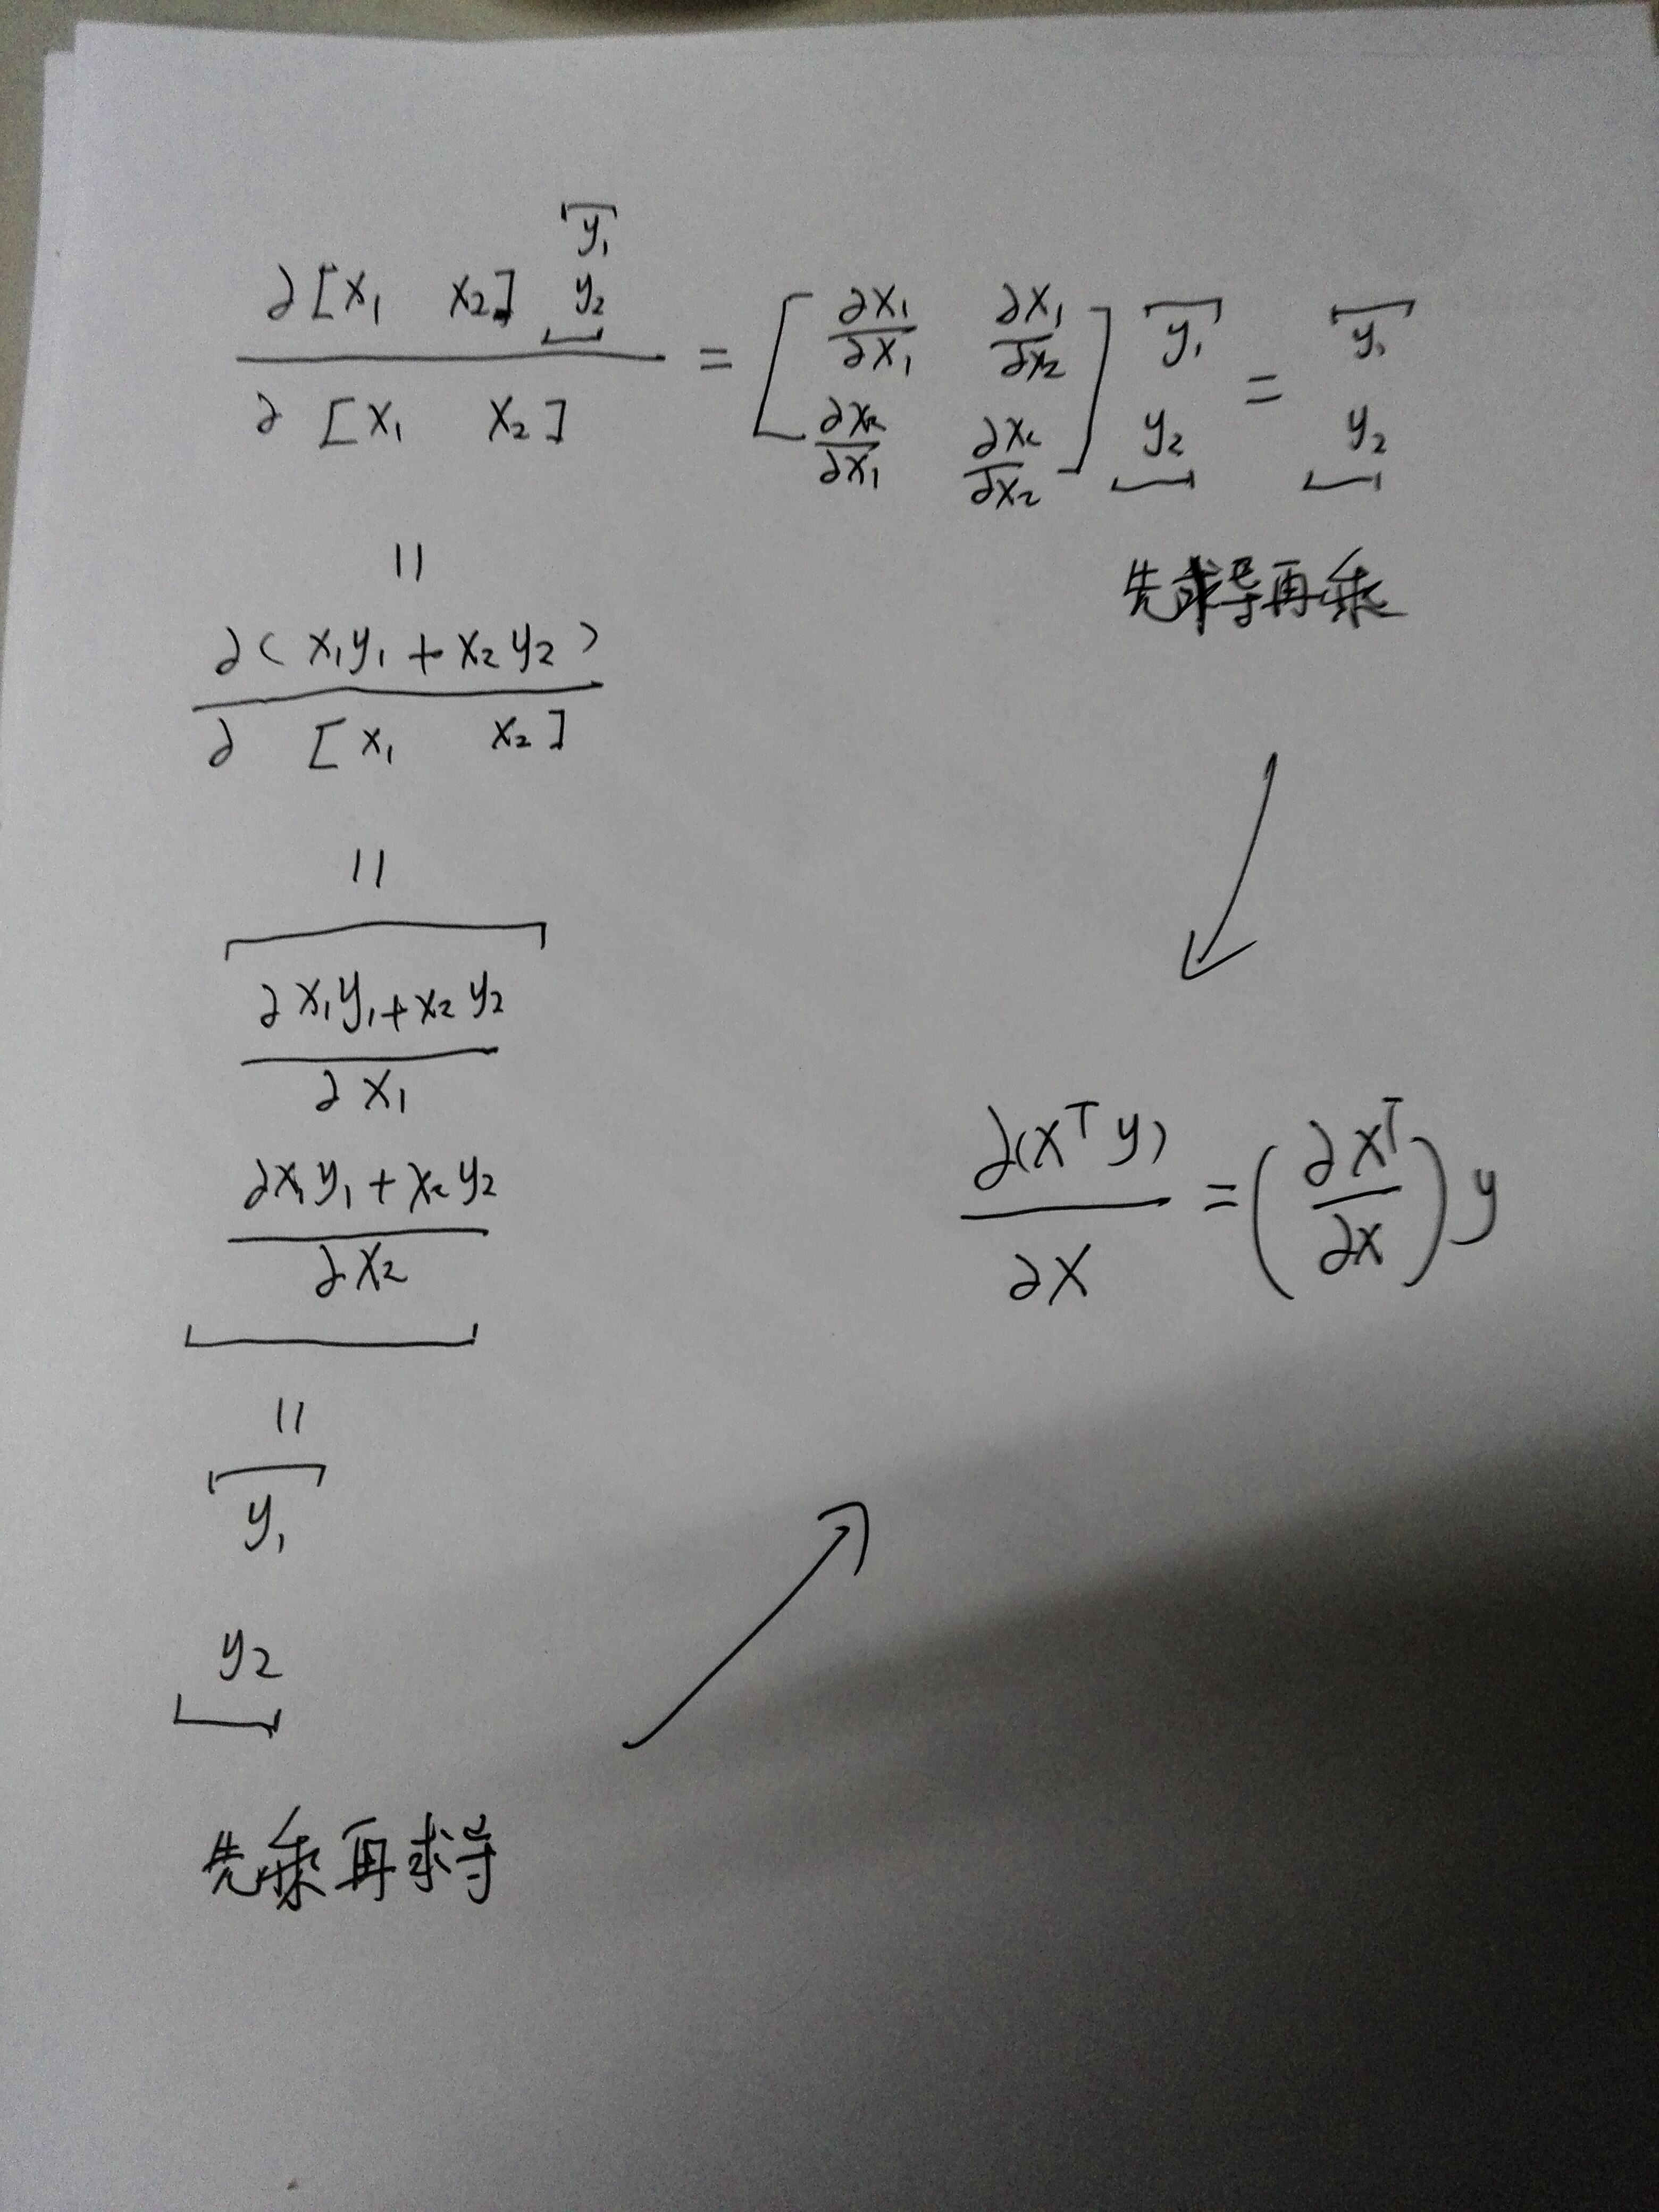 ∂[x₁ x₂] [y₁ y₂] / ∂[x₁ x₂] = [∂x₁/∂x₁ ∂x₁/∂x₂ ; ∂x₂/∂x₁ ∂x₂/∂x₂] [y₁ y₂] = [y₁ y₂]
先求导再乘
=
∂(x₁y₁+x₂y₂) / ∂[x₁ x₂]
=
[∂x₁y₁+x₂y₂ / ∂x₁
∂x₁y₁+x₂y₂ / ∂x₂]
=
[y₁
y₂]
先乘再求导
∂(xᵀy)/∂x = (∂xᵀ/∂x) y